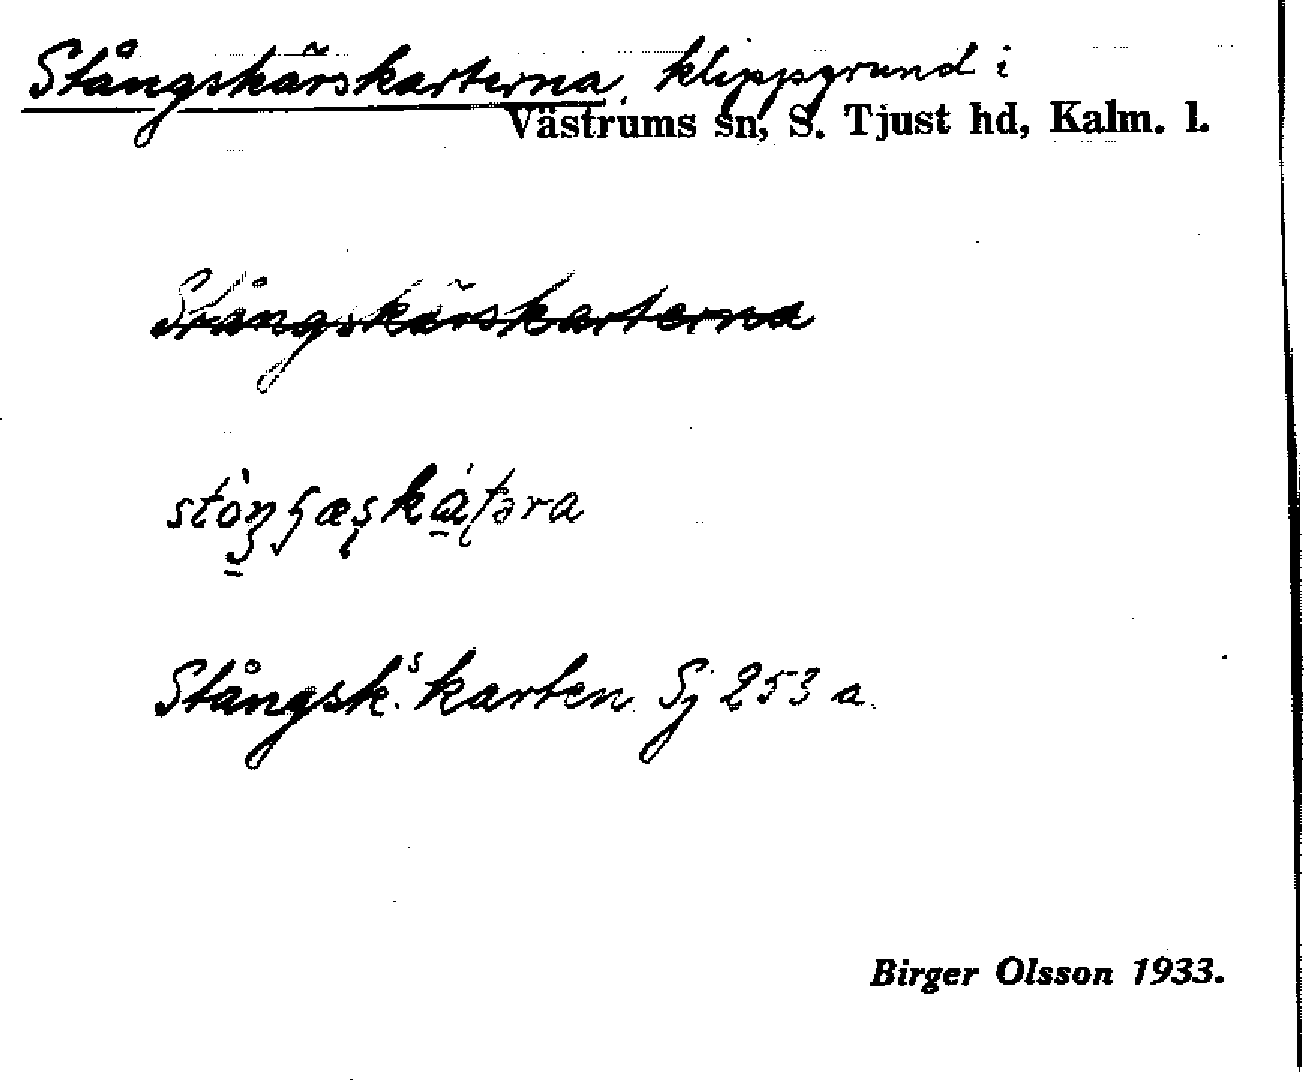 Stångskärskarterna, klippgrund i
Västrums sn, S. Tjust hd, Kalm. l.
Stångskärskarterna
Stångsk:s karten Sj 253 a.
Birger Olsson 1933.